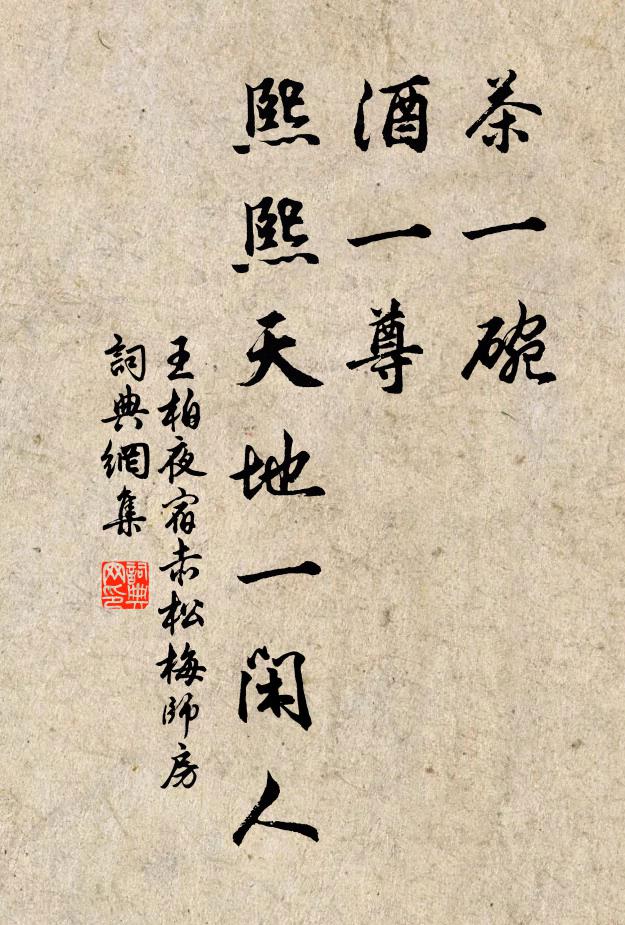 茶一碗
酒一尊
熙熙天地一閑人
王柏夜宿赤松梅師房
詞典網集
詞典
网印